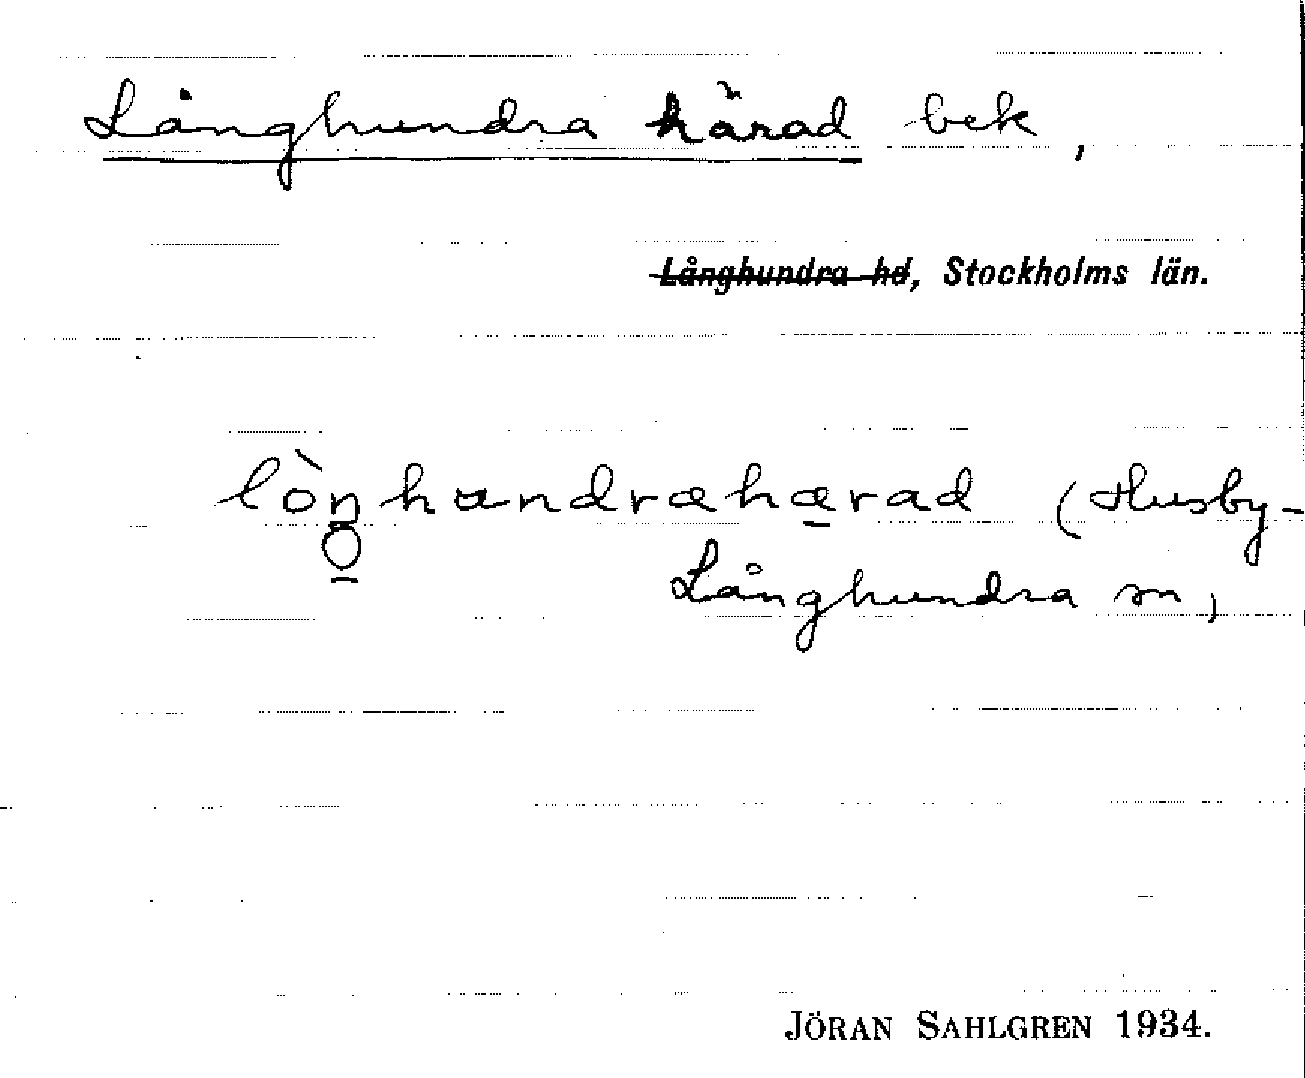 Långhundra härad bek,
Långhundra hd, Stockholms län.
lòŋhundrahærad (Husby-
Långhundra sn)
JÖRAN SAHLGREN 1934.